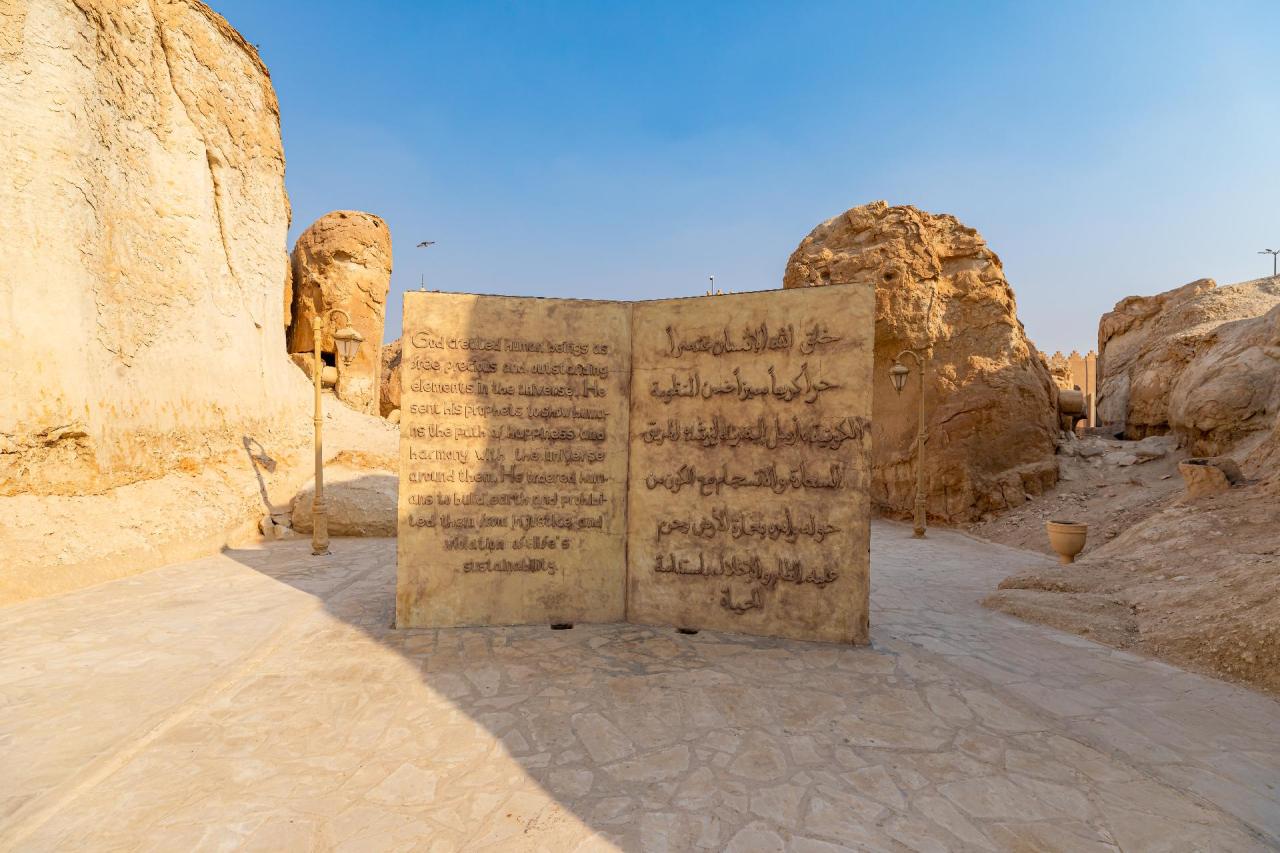 God created human beings as
free precious and outstanding
elements in the universe. He
sent his prophets, to show huma-
ns the path of happiness and
harmony with the universe
around them. He tradered hum-
ans to build earth and prohibi-
ted them from injustice and
violation of life's
sustainability.
خلق الله الإنسان عنصراً
حراً كريماً مميزاً ضمن المنظومة
الكونية، أرسل الأنبياء لإرشاده لطريق
السعادة والانسجام مع الكون من
حوله، أمره بعمارة الأرض وحرم
عليه الظلم والإخلال باستدامة
الحياة